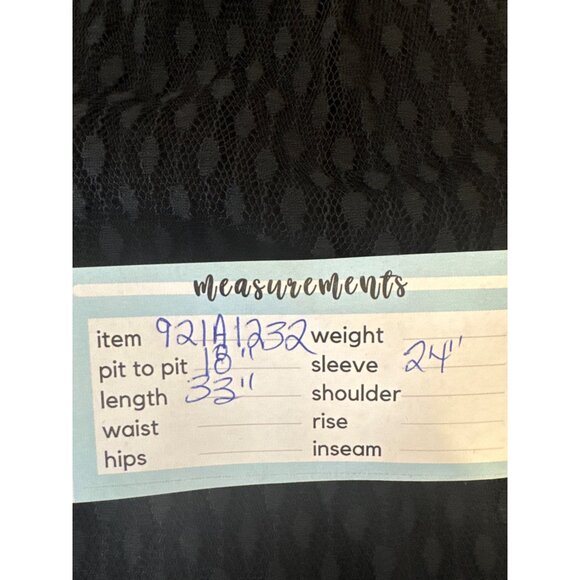 measurements
item 921A1232 weight
pit to pit 18" sleeve 24"
length 33" shoulder
waist rise
hips inseam